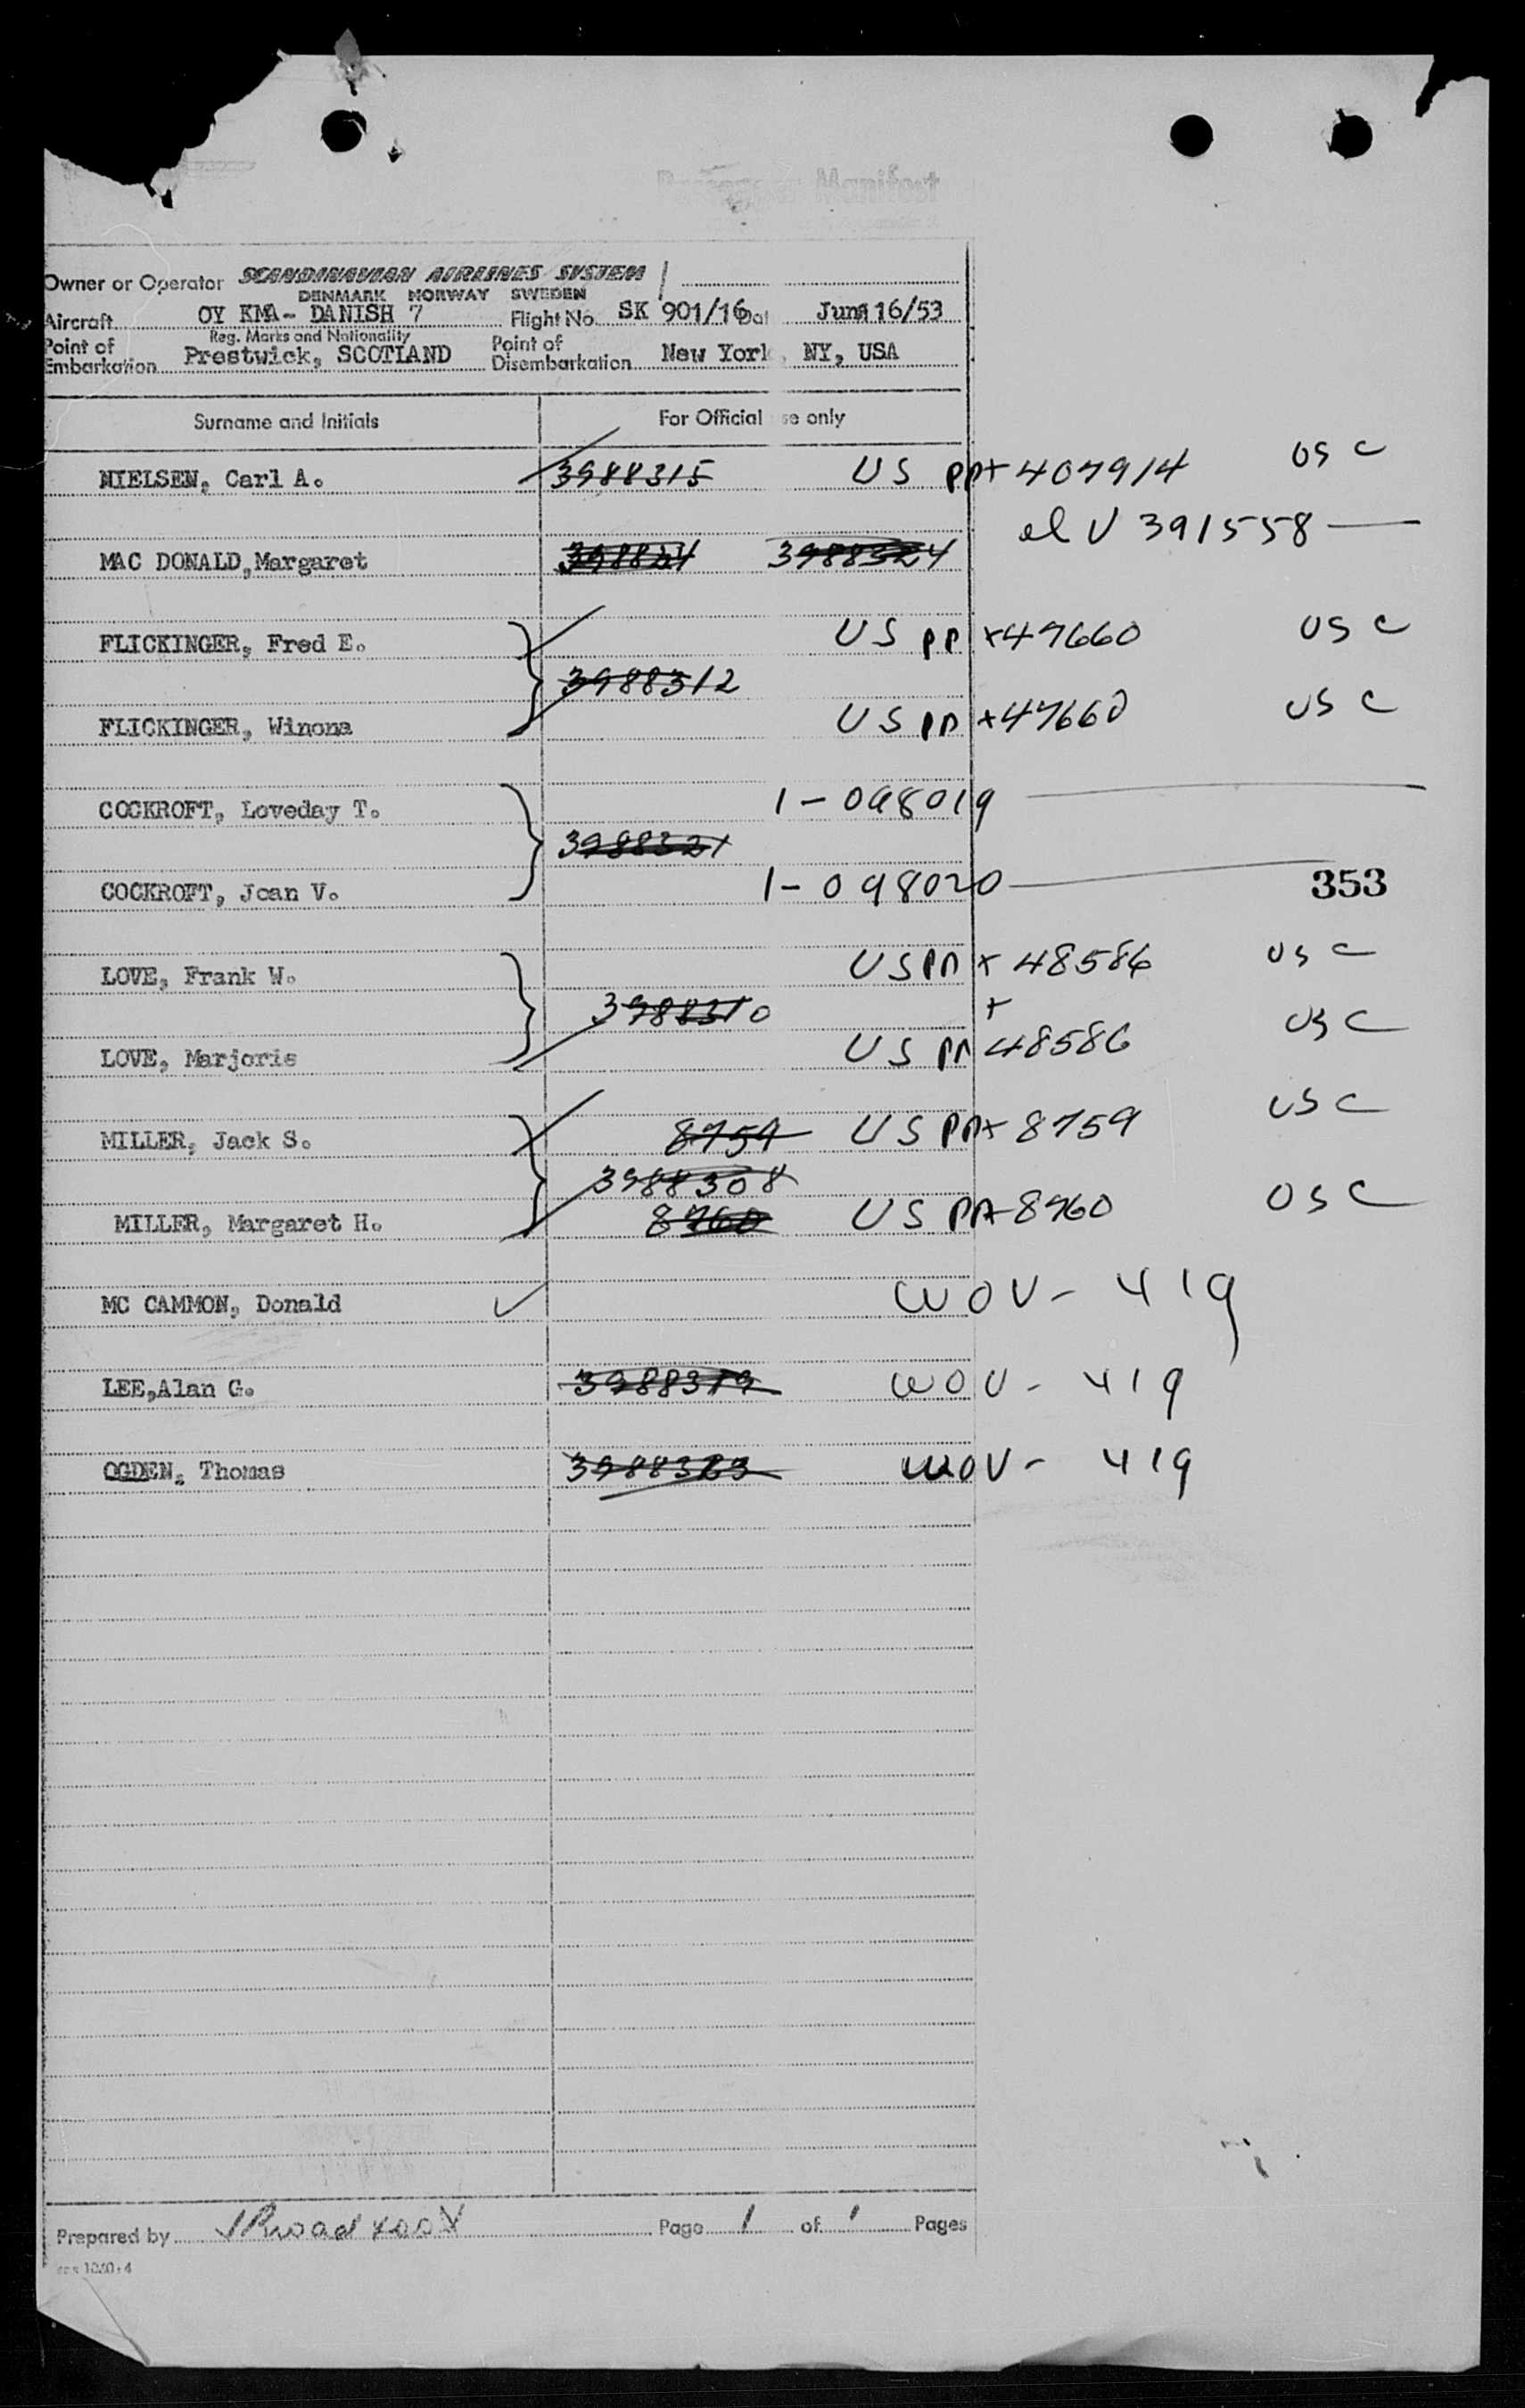 Passenger Manifest
Owner or Operator SCANDINAVIAN AIRLINES SYSTEM
DENMARK NORWAY SWEDEN
Aircraft OY KMA- DANISH 7 Flight No. SK 901/16 Dat June 16/53
Reg. Marks and Nationality
Point of Embarkation Prestwick, SCOTLAND Point of Disembarkation New York, NY, USA
Surname and Initials For Official se only
NIELSEN, Carl A. 3988315 US PPX 407914 USC
el V 391558
MAC DONALD,Margaret 3988324
FLICKINGER, Fred E. US PP X47660 USC
3988312
FLICKINGER, Winona US PP X47660 USC
COCKROFT, Loveday T. 1-098019
3988321
COCKROFT, Joan V. 1-098020
353
LOVE, Frank W. US PP X 48586 USC
3988310 X
LOVE, Marjorie US PP 48586 USC
MILLER, Jack S. 8759 US PPX 8759 USC
3988308
MILLER, Margaret H. 8760 US PPX 8760 USC
MC CAMMON, Donald WOV- 419
LEE,Alan G. 3988319 WOV- 419
OGDEN, Thomas 3988323 WOV- 419
Prepared by Page 1 of 1 Pages